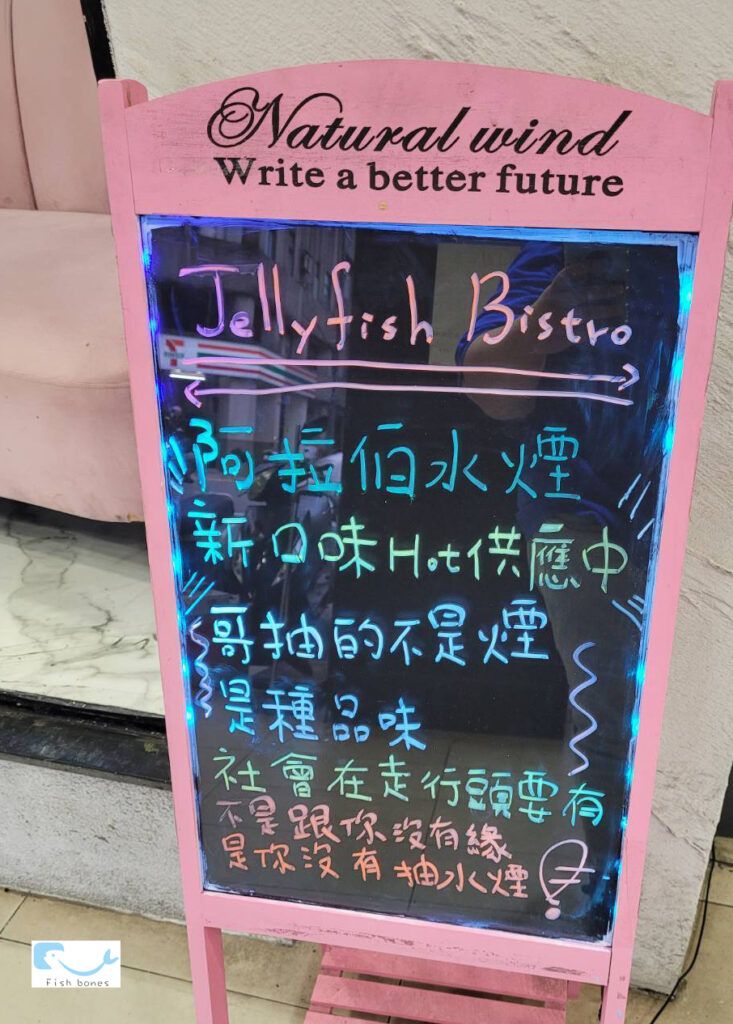 Natural wind
Write a better future
Jellyfish Bistro
阿拉伯水煙
新口味Hot供應中
哥抽的不是煙
是種品味
社會在走行頭要有
不是跟你沒有緣
是你沒有抽水煙
Fish bones